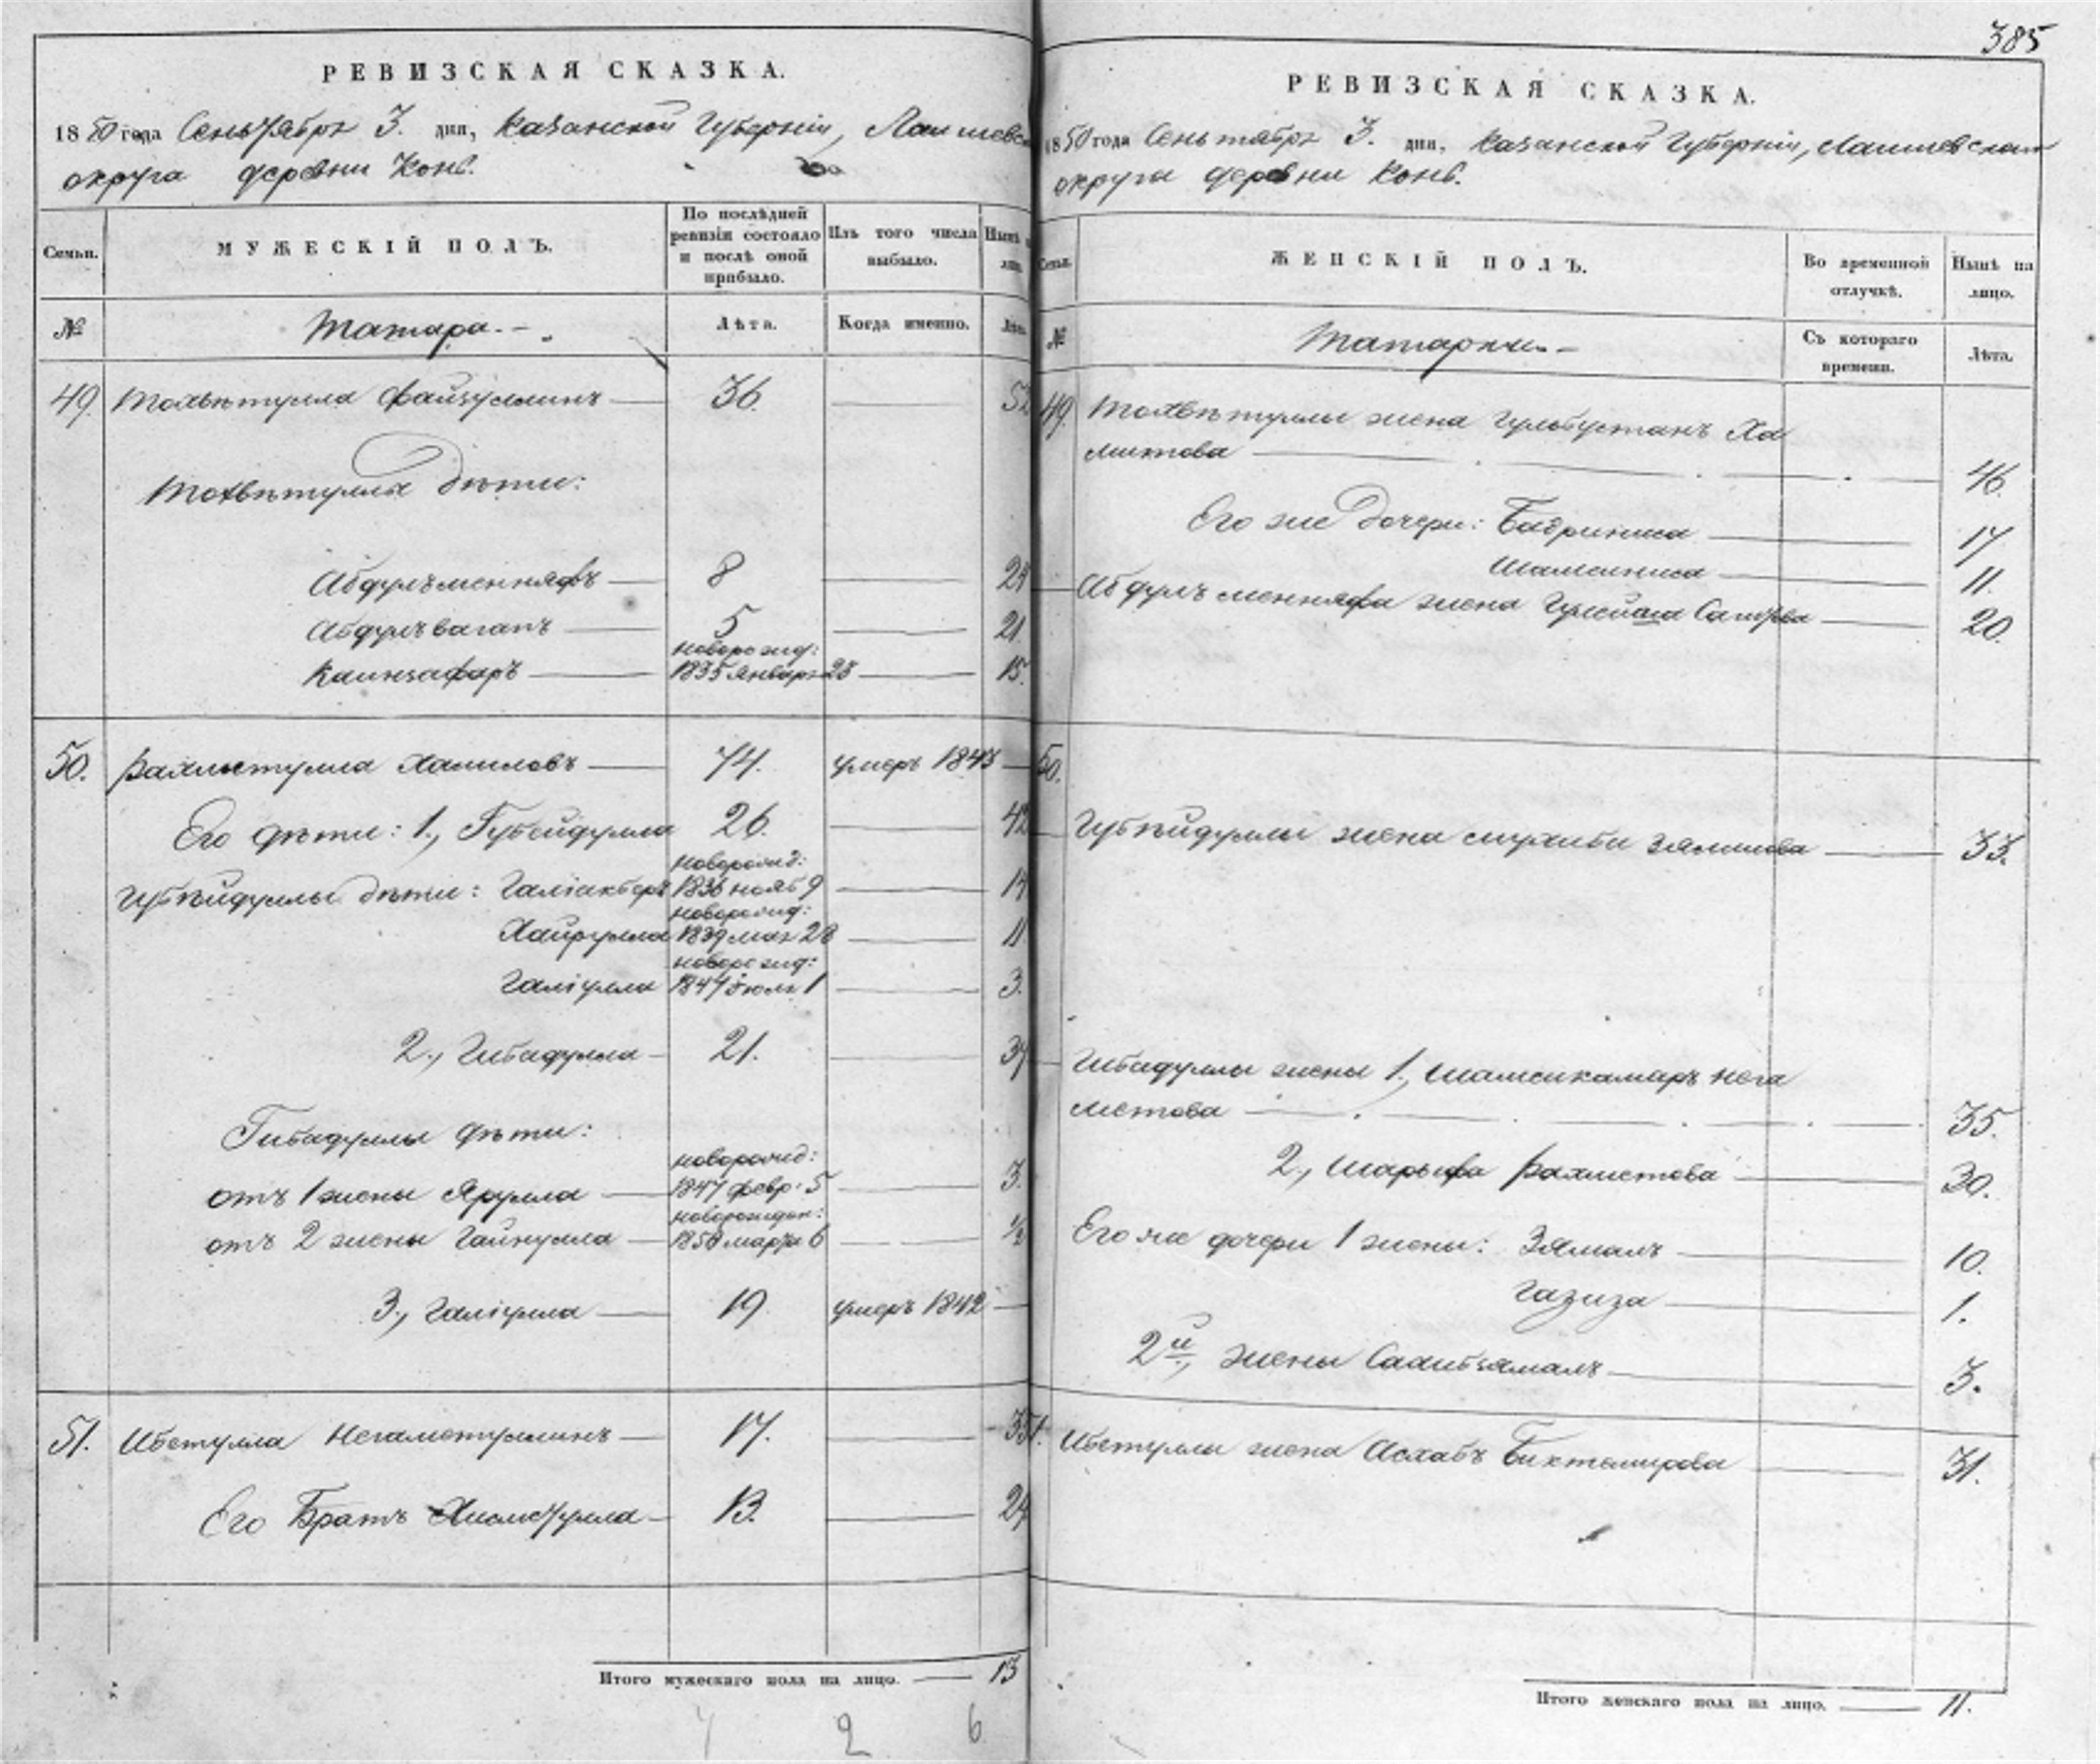 РЕВИЗСКАЯ СКАЗКА.
1850 года Сентября 3. дня, Казанской Губерніи, Лаишевск
округа деревни Конь.
Семьи.
МУЖЕСКІЙ ПОЛЪ.
По послѣдней ревизіи состояло и послѣ оной прибыло.
Изъ того числа выбыло.
Нынѣ
№
Татара.
Лѣта.
Когда именно.
Лѣта
49. Тохветулла Файзуллинъ — 36. — 52
Тохветуллы дѣти:
Абдулъменнафъ — 8 — 24
Абдулъваганъ — 5 — 21
новорожд:
1835 Января 23 — 15.
50. Рахметулла Халиловъ — 74. умеръ 1843 —
Его дѣти: 1., Губейдулла 26. — 42
новорожд:
Губейдуллы дѣти: Галіакберъ 1836 нояб 9 — 14
новорожд:
Хайрулла 1839 мая 28 — 11
новорожд:
Галіулла 1847 Іюля 1 — 3.
2., Гибадулла — 21. — 37
Гибадуллы дѣти:
новорожд:
отъ 1 жены Ярулла — 1847 февр. 5 — 3.
новорожден:
отъ 2 жены Гайнулла — 1850 марта 6 — ½
3., Галіулла — 19. умеръ 1842 —
51. Ибетулла Негаметуллинъ — 17. — 33
Его Братъ Хисметулла — 13. — 29
Итого мужескаго пола на лицо. — 13
7 2 6
385
РЕВИЗСКАЯ СКАЗКА.
1850 года Сентября 3. дня, Казанской Губерніи, Лаишевскаго
округа деревни Конь.
Семьи.
ЖЕНСКІЙ ПОЛЪ.
Во временной отлучкѣ.
Нынѣ на лицо.
№
Татарки.
Съ котораго времени.
Лѣта.
49. Тохветуллы жена Гульбустанъ Ха
митова — 46.
Его же дочери: Бадриниса — 17
Шамсиниса — 11.
Абдулъменнафа жена — 20.
50.
Губейдуллы жена — 33.
Гибадуллы жены 1., Шамсикамаръ Нега
метова — 35.
2., Шарыфа Рахметова — 30.
Его же дочери 1 жены: Зямалъ — 10.
Газиза — 1.
2й, жены Сахибзямалъ — 3.
51. Ибетуллы жена Асхабъ Биктемирова — 31.
Итого женскаго пола на лицо. — 11.